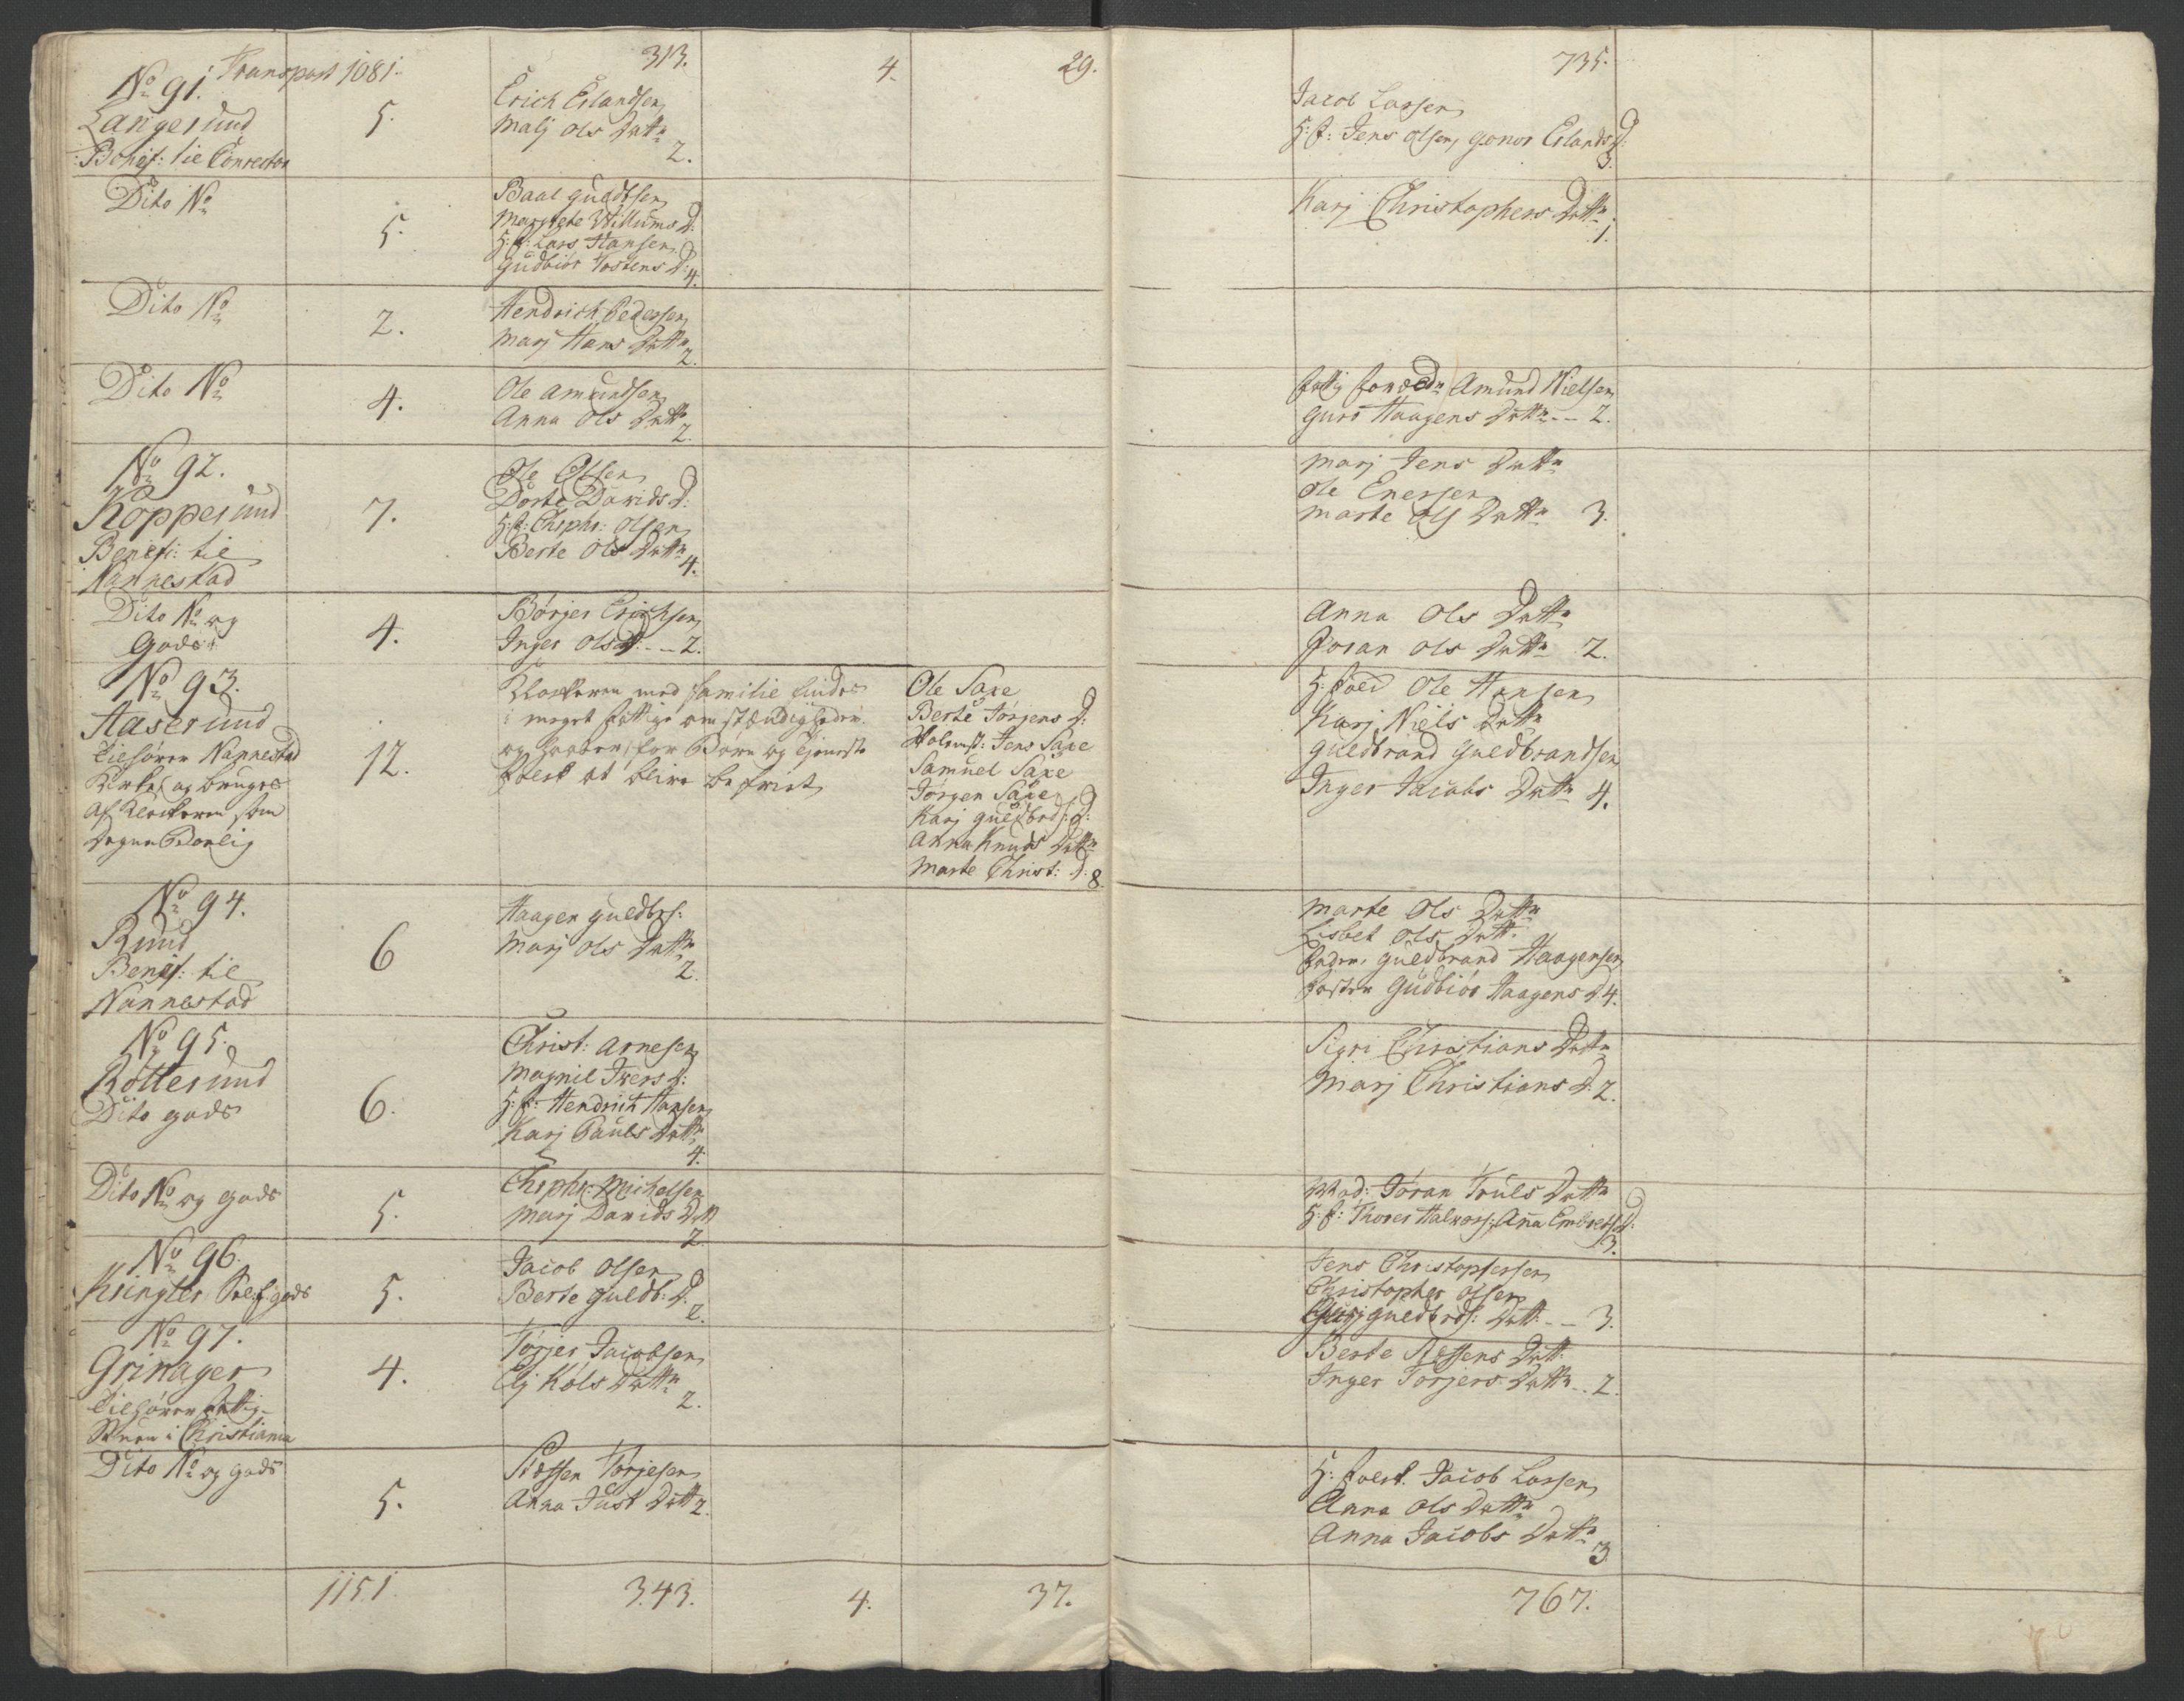 Transport 1081. 313. 4. 29. 735.
No 91.
Langerund
Benif: til Conrector
5.
Erich Erlandsen
Marj Ols Dattr
2.
Jacob Larsen
H: f: Jens Olsen, Gonor Erlands D:
3.
Dito No
5.
Paal Guldbsen
Margrete Willums D:
H: f: Lars Hansen
Gudbiør Tostens D: 4.
Karj Christophers Dattr
1.
Dito No
2.
Hendrich Pedersen
Marj Hans Dattr
2.
Dito No
4.
Ole Amundsen
Anna Ols Dattr
2.
Amund Nielsen
Guro Haagens Dattr -- 2.
No 92.
Kopperund
Benefi: til
Nannestad
7.
Ole Olsen
Dorte Davids D:
H: f: Chrphr: Olsen
Berte Ols Dattr
4.
Marj Jens Dattr
Ole Enersen
Marte Ols Dattr 3.
Dito No og
Gods
4.
Børger Erichsen
Inger Ols D: -- 2.
Anna Ols Dattr
Joran Ols Dattr 2.
No 93.
Haserund
tilhører Nannestad
Kirke, og bruges
af Klockeren som
Degne Boelig
12.
Klockeren med familie findes
i meget fattige omstændigheder
og haaber, for Børn og tieneste
folck at blive befriet
Ole Saxe
Berte Jørgens D:
Jens Saxe
Samuel Saxe
Jørgen Saxe
Karj Guldbrds: D:
Anna Knuds Dattr
Marte Christ: D: 8.
H: foed Ole Hansen
Karj Niels Dattr
Guldbrand Guldbrandsen
Inger Jacobs Dattr 4.
No 94.
Rund
Benef: til
Nannestad
6
Haagen Guldbrs:
Marj Ols Dattr
2.
Marte Ols Dattr
Lisbet Ols Datt.
Fader, Guldbrand Haagensen
Gudbiør Haagens D. 4.
No 95.
Rotterund
Dito gods
6.
Christ: Arnesen
Magnil Ivers D:
H: f: Hendrich Hansen
Karj Pauls Dattr
4.
Sigri Christians Dattr
Marj Christians D. 2.
Dito No og gods
5.
Chrphr: Michelsen
Marj Davids Datt
2.
Mad: Joran Truls Dattr
H: f: Thorer Halvors: Ana Embrets D:
3.
No 96.
Kringler Self gods
5.
Jacob Olsen
Berte Guldb: D.
2.
Jens Christophersen
Christopher Olsen
Guldbrds: Datt. -- 3.
No 97.
Grinager
tilhører fattig-
Christiania
4.
Torjer Jacobsen
Elj Kols Dattr
2.
Berte Steffens Datt.
Inger Torjers Dattr -- 2.
Dito No og gods
5.
Steffen Torjesen
Anna Just Datt 2.
H: foelk. Jacob Larsen
Anna Ols Dattr
Anna Jacobs Dattr
3.
1151. 343. 4. 37. 767.